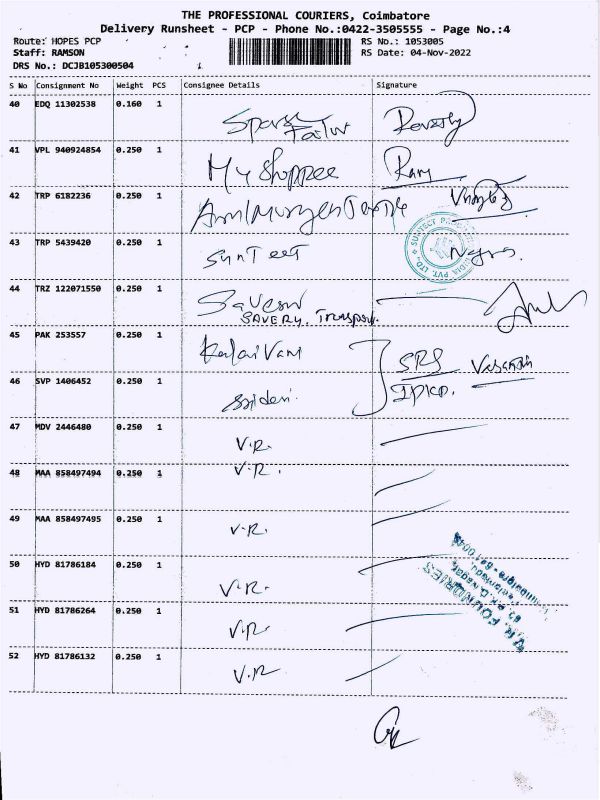 THE PROFESSIONAL COURIERS, Coimbatore
Delivery Runsheet - PCP - Phone No.:0422-3505555 - Page No.:4
Route: HOPES PCP RS No.: 1053005
Staff: RAMSON RS Date: 04-Nov-2022
DRS No.: DCJB105300504
S No Consignment No Weight PCS Consignee Details Signature
40 EDQ 11302538 0.160 1
41 VPL 940924854 0.250 1 My Shoppee Ram
42 TRP 6182236 0.250 1
43 TRP 5439420 0.250 1 SunTeet
44 TRZ 122071550 0.250 1
SAVERY. Transport.
45 PAK 253557 0.250 1 KalaiVani SRS
46 SVP 1406452 0.250 1
47 MDV 2446480 0.250 1 V.R.
48 MAA 858497494 0.250 1 V.R.
49 MAA 858497495 0.250 1 V.R.
50 HYD 81786184 0.250 1 V.R.
51 HYD 81786264 0.250 1 V.R.
52 HYD 81786132 0.250 1 V.R
FOUNDRIES